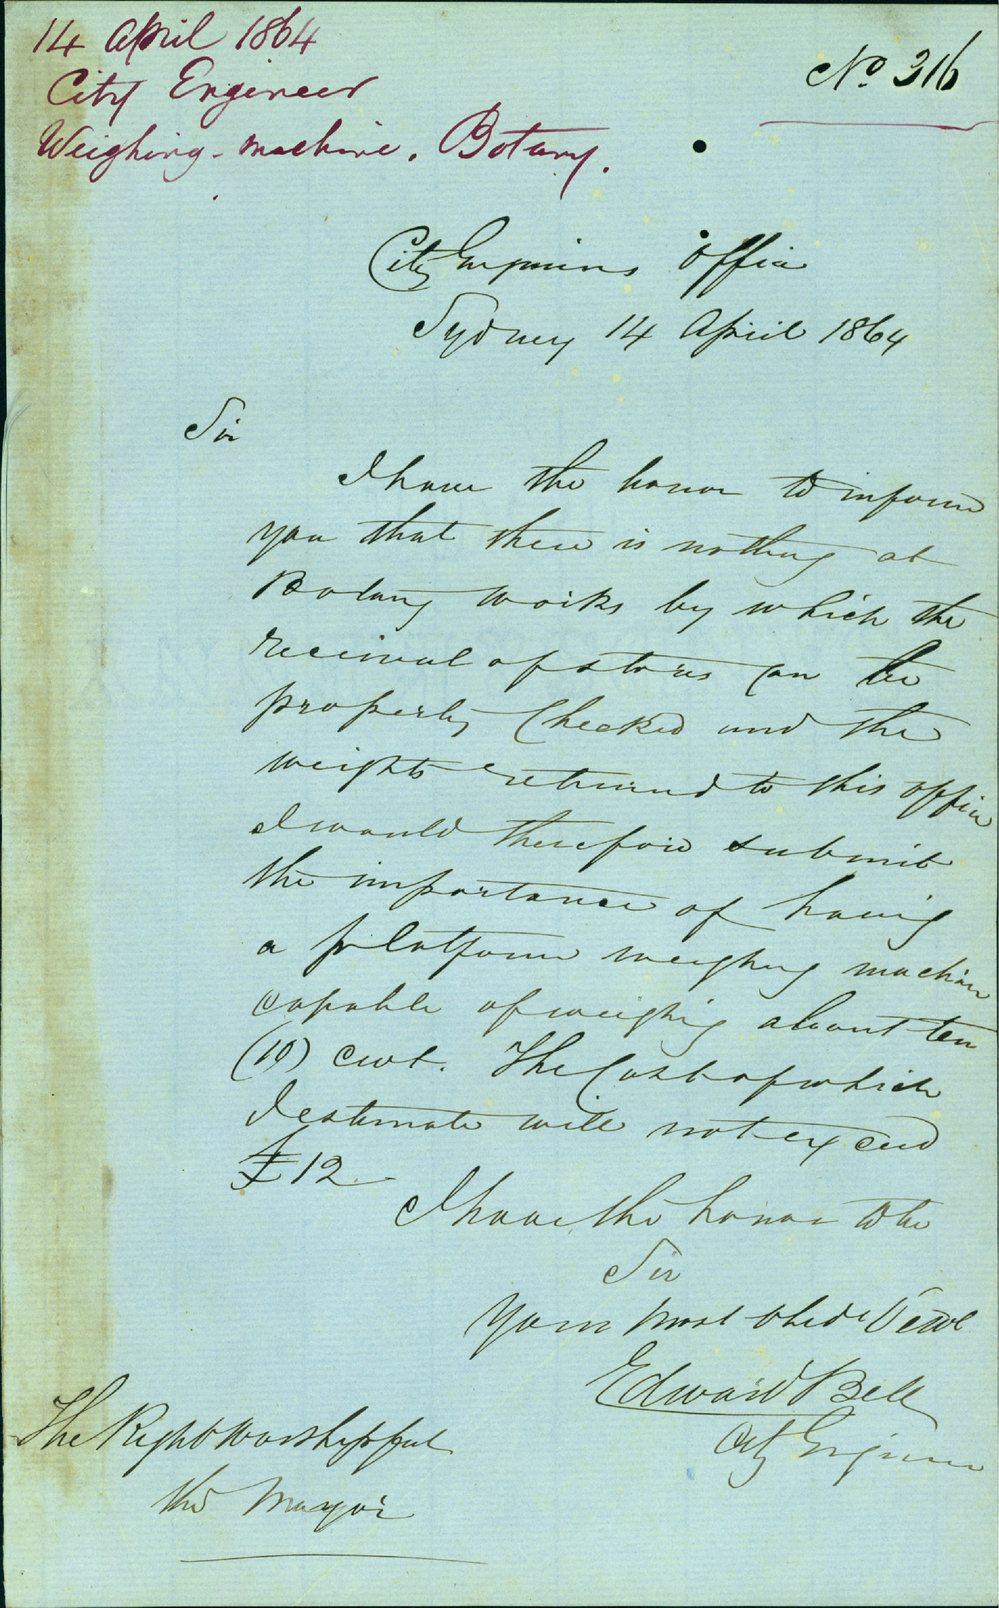 14 April 1864
City Engineer
Weighing-machine. Botany.
No. 316
City Engineers Office
Sydney 14 April 1864
Sir
I have the honor to inform
you that there is nothing at
Botany works by which the
receival of stores can be
properly Checked and the
weights returned to this office
I would therefore submit
the importance of having
a platform weighing machine
capable of weighing about ten
(10) cwt. The Cost of which
I estimate will not exceed
£12
I have the honor to be
Sir
Your most obedt Servt
Edward Bell
City Engineer
The Right Worshipful
the Mayor